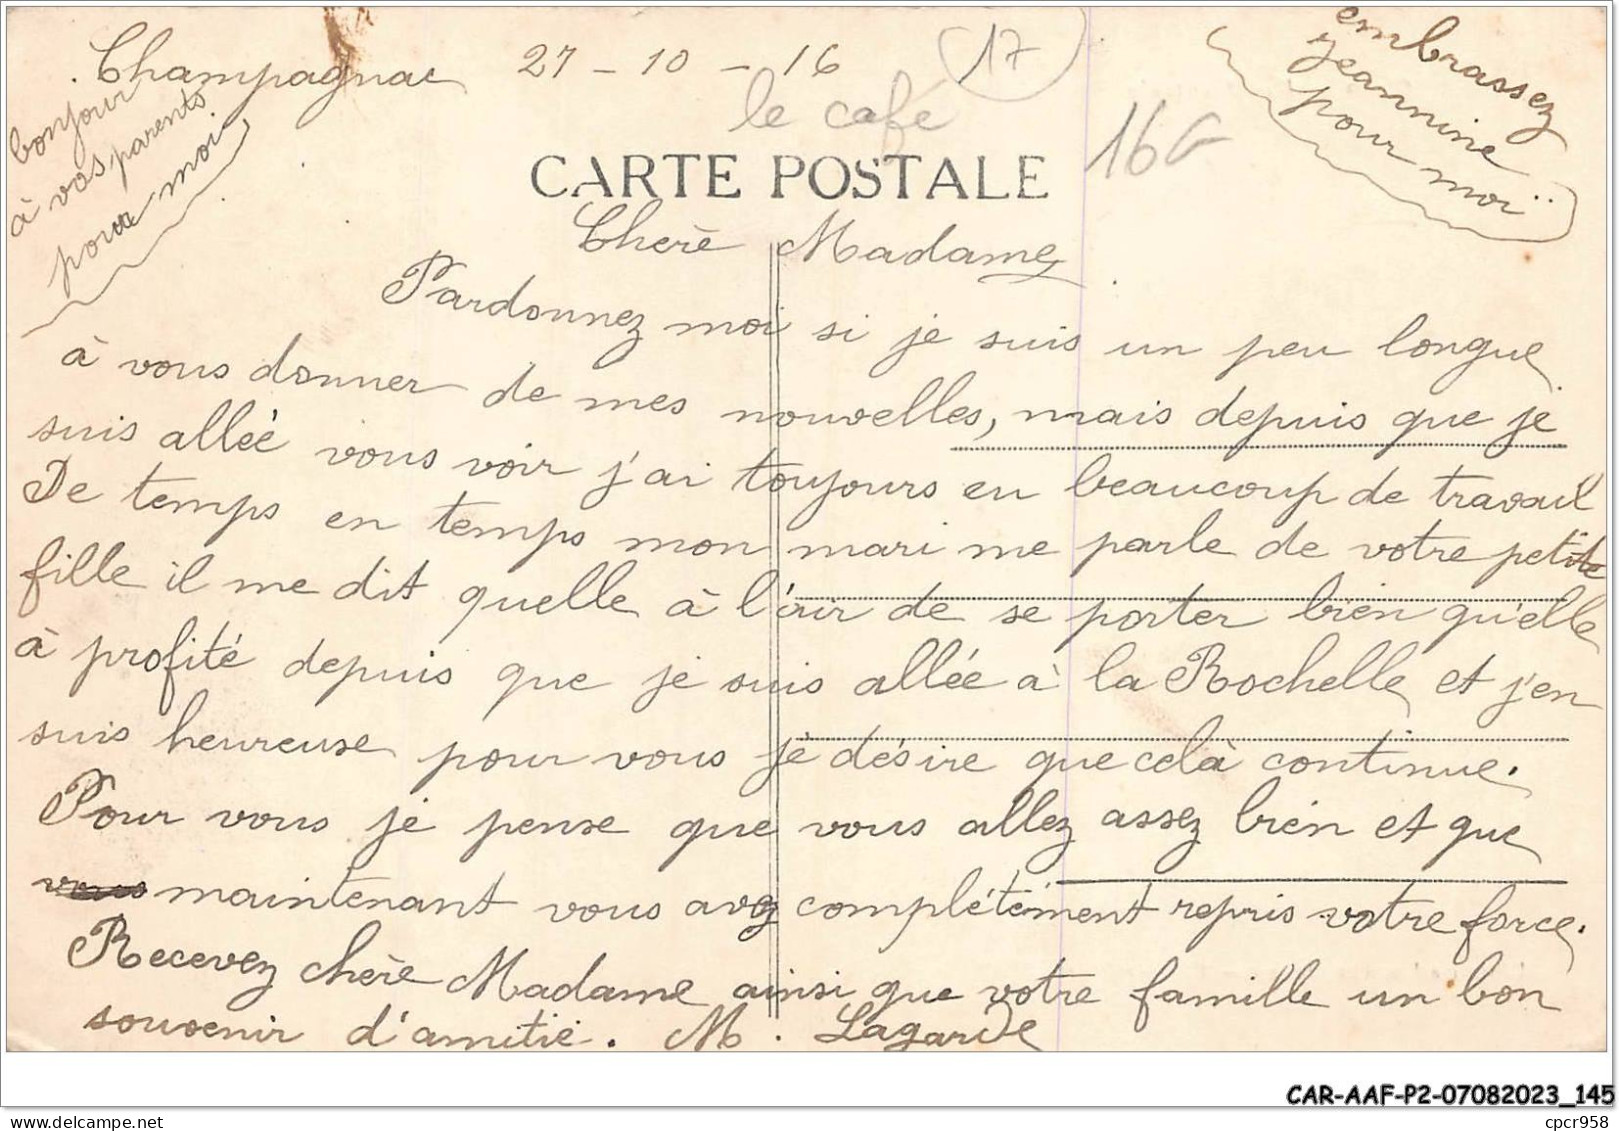 Champagnac 27-10-16
17
le café
16 G
bonjour
à vos parents
pour moi
embrassez
Jeannine
pour moi
CARTE POSTALE
Chère Madame
Pardonnez moi si je suis un peu longue
à vous donner de mes nouvelles, mais depuis que je
suis allée vous voir j'ai toujours eu beaucoup de travail
De temps en temps mon mari me parle de votre petite
fille il me dit quelle à l'air de se porter bien qu'elle
à profité depuis que je suis allée à la Rochelle et j'en
suis heureuse pour vous je désire que celà continue.
Pour vous je pense que vous allez assez bien et que
maintenant vous avez complétément repris votre force.
Recevez chère Madame ainsi que votre famille un bon
souvenir d'amitié. M. Lagarde
CAR-AAF-P2-07082023_145
delcampe.net
cpcr958